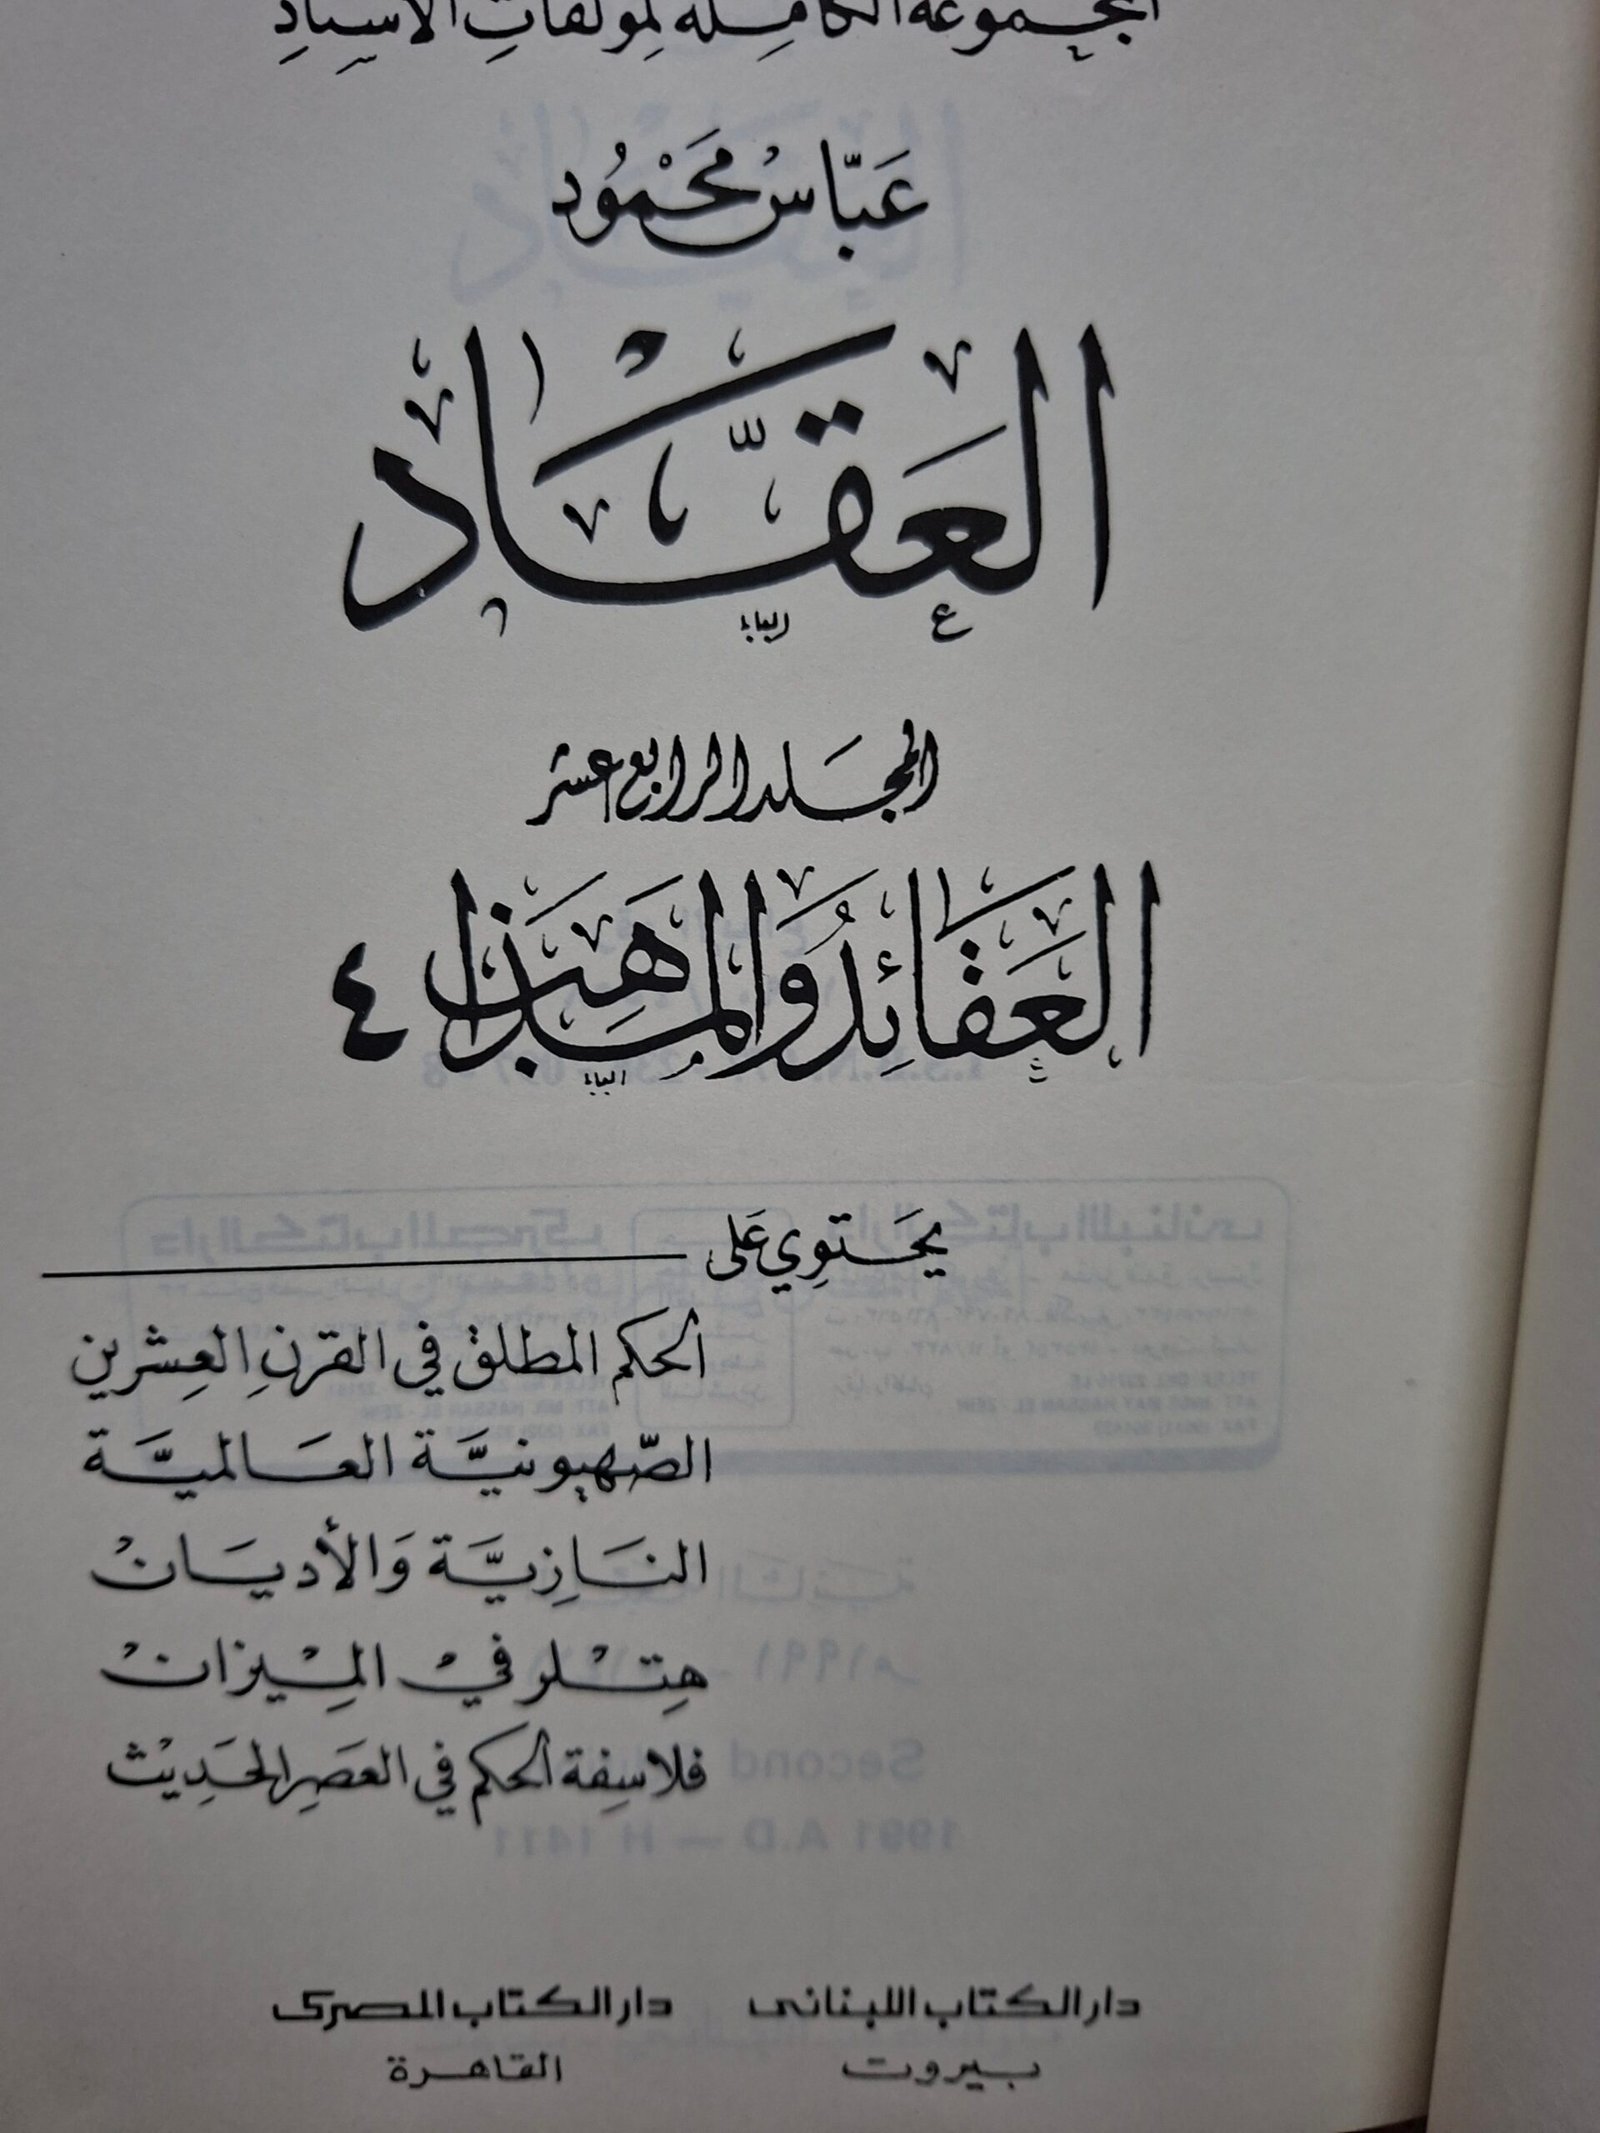 المجموعة الكاملة لمؤلفات الأستاذ
عَبَّاس محَمْوُد
العَقَّاد
المجَلد الرابع عشر
العَقَائِدُ وَالمَذَاهِبُ ٤
يحَتوِي عَلى
الحكم المطلق في القرنِ العِشرين
الصّهيونيَّة العَالميَّة
النَازِيَّة وَالأديَانْ
هِتْلر فيْ المِيْزانْ
فلاسِفة الحكم في العَصِر الحَدِيْث
دار الكتاب اللبنانى
دار الكتاب المصرى
بيروت
القاهرة